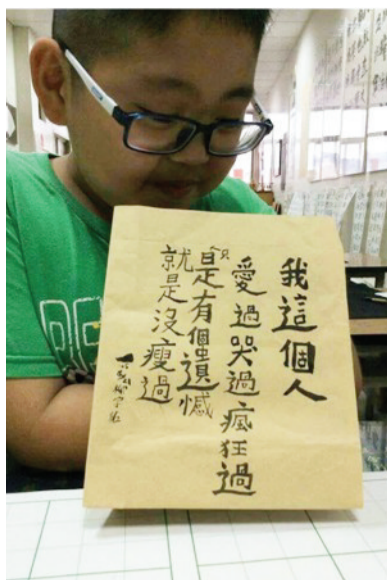 我這個人
愛過哭過瘋狂過
是有個遺憾
就是沒瘦過